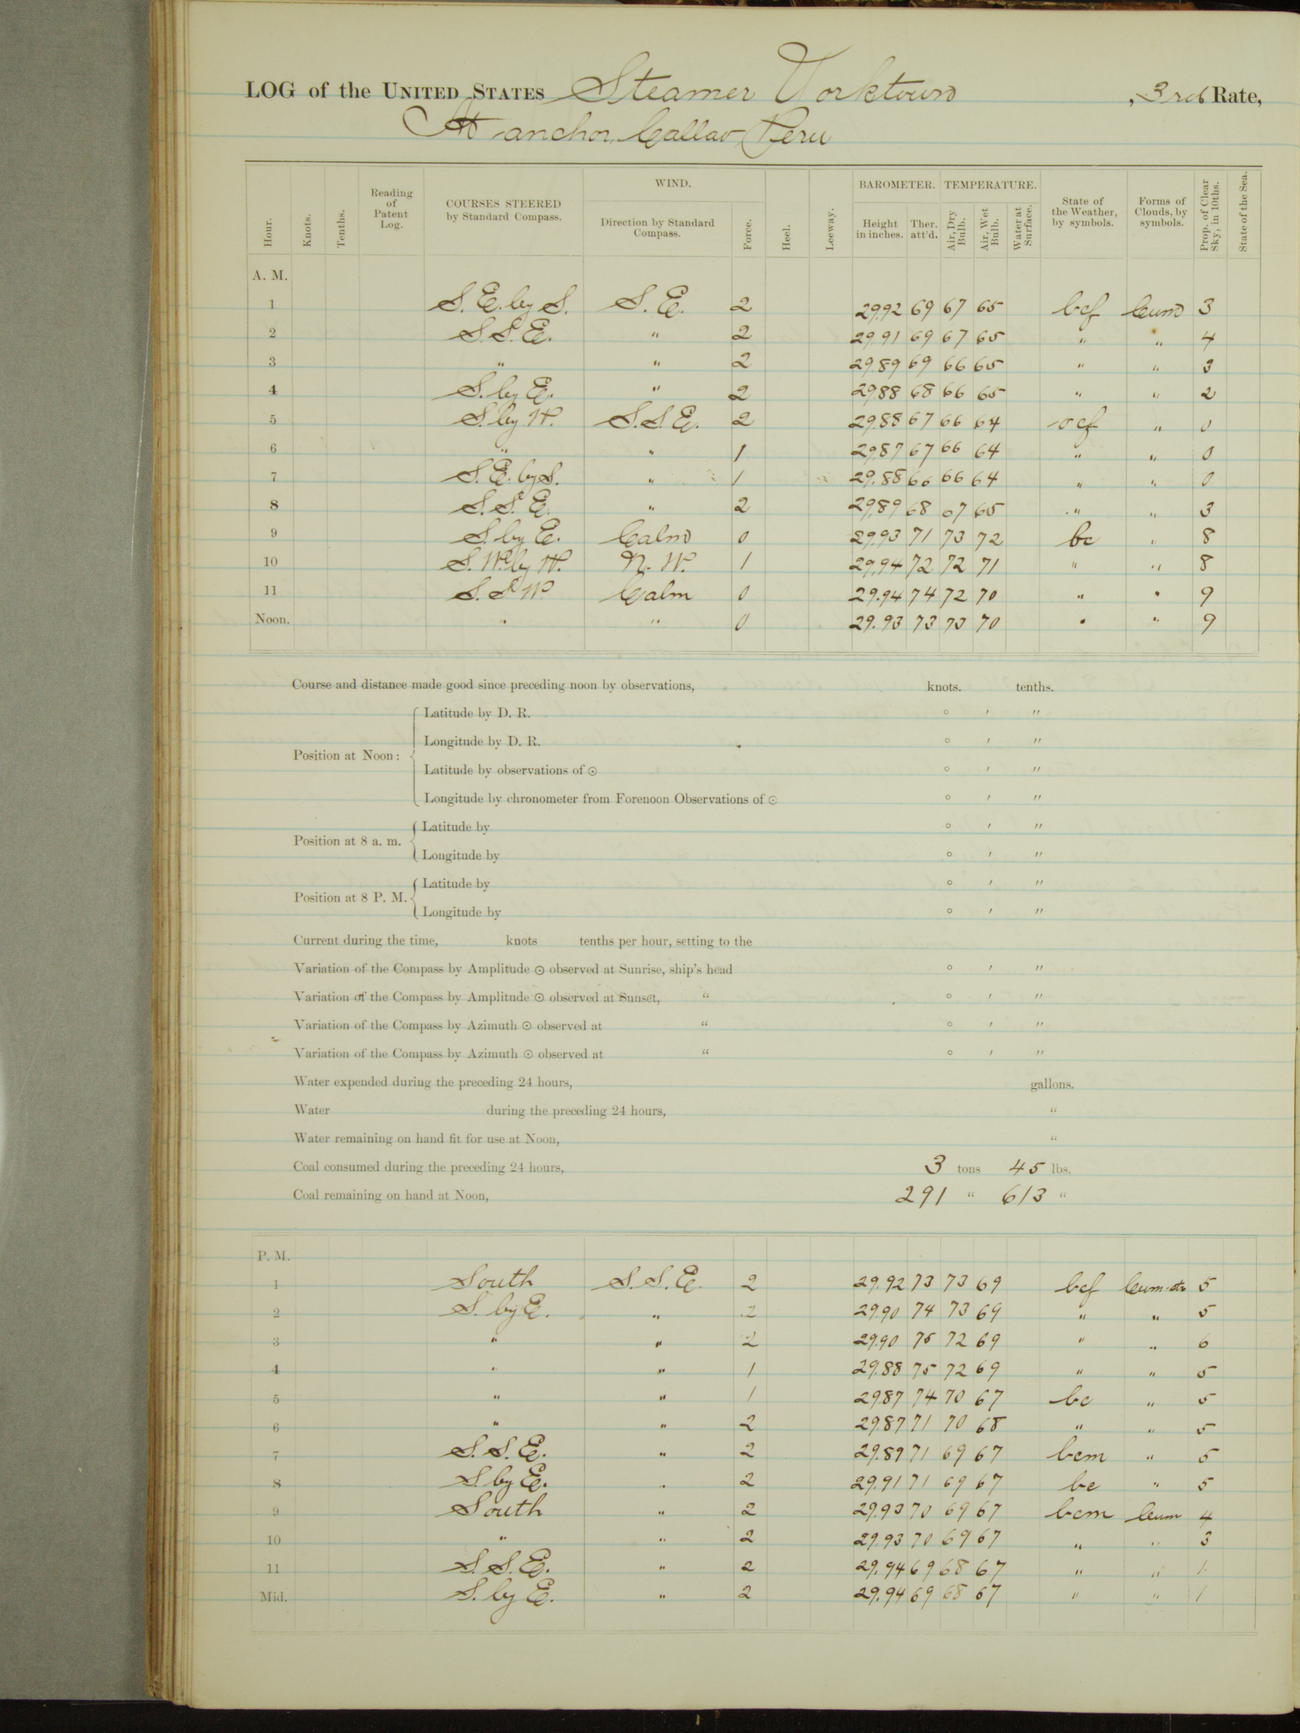 LOG of the UNITED STATES Steamer Yorktown, 3rd Rate,
At anchor, Callao, Peru
Hour. Knots. Tenths. Reading of Patent Log. COURSES STEERED by Standard Compass. WIND. Direction by Standard Compass. Force. Heel. Leeway. BAROMETER. Height in inches. Ther. att'd. TEMPERATURE. Air, Dry Bulb. Air, Wet Bulb. Water at Surface. State of the Weather, by symbols. Forms of Clouds, by symbols. Prop. of Clear Sky, in 10ths. State of the Sea.
A. M.
1 S. E. by S. S. E. 2 29.92 69 67 65 bcf Cum 3
2 S. S. E. " 2 29.91 69 67 65 " " 4
3 " " 2 29.89 69 66 65 " " 3
4 S. by E. " 2 29.88 68 66 65 " " 2
5 S. by W. S. S. E. 2 29.88 67 66 64 ocf " 0
6 " " 1 29.87 67 66 64 " " 0
7 S. E. by S. " 1 29.88 66 66 64 " " 0
8 S. S. E. " 2 29.89 68 67 65 " " 3
9 S. by E. Calm 0 29.93 71 73 72 bc " 8
10 S. W. by W. N. W. 1 29.94 72 72 71 " " 8
11 S. S. W. Calm 0 29.94 74 72 70 " " 9
Noon. " " 0 29.93 73 73 70 " " 9
Course and distance made good since preceding noon by observations, knots. tenths.
Position at Noon: Latitude by D. R. ° ' "
Longitude by D. R. ° ' "
Latitude by observations of ☉ ° ' "
Longitude by chronometer from Forenoon Observations of ☉ ° ' "
Position at 8 a. m. Latitude by ° ' "
Longitude by ° ' "
Position at 8 P. M. Latitude by ° ' "
Longitude by ° ' "
Current during the time, knots tenths per hour, setting to the
Variation of the Compass by Amplitude ☉ observed at Sunrise, ship's head ° ' "
Variation of the Compass by Amplitude ☉ observed at Sunset, " ° ' "
Variation of the Compass by Azimuth ☉ observed at " ° ' "
Variation of the Compass by Azimuth ☉ observed at " ° ' "
Water expended during the preceding 24 hours, gallons.
Water during the preceding 24 hours, "
Water remaining on hand fit for use at Noon, "
Coal consumed during the preceding 24 hours, 3 tons 45 lbs.
Coal remaining on hand at Noon, 291 " 613 "
P. M.
1 South S. S. E. 2 29.92 73 73 69 bcf Cum-str 5
2 S. by E. " 2 29.90 74 73 69 " " 5
3 " " 2 29.90 75 72 69 " " 6
4 " " 1 29.88 75 72 69 " " 5
5 " " 1 29.87 74 70 67 bc " 5
6 " " 2 29.87 71 70 68 " " 5
7 S. S. E. " 2 29.89 71 69 67 bcm " 5
8 S. by E. " 2 29.91 71 69 67 bc " 5
9 South " 2 29.93 70 69 67 bcm Cum 4
10 " " 2 29.93 70 69 67 " " 3
11 S. S. E. " 2 29.94 69 68 67 " " 1
Mid. S. by E. " 2 29.94 69 68 67 " " 1